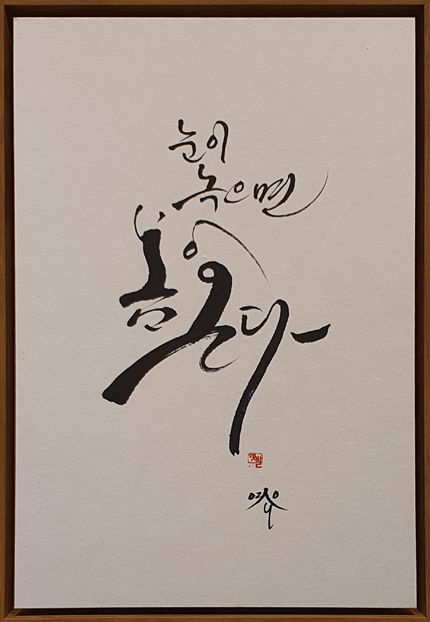 눈이
녹으면
봄이
온다